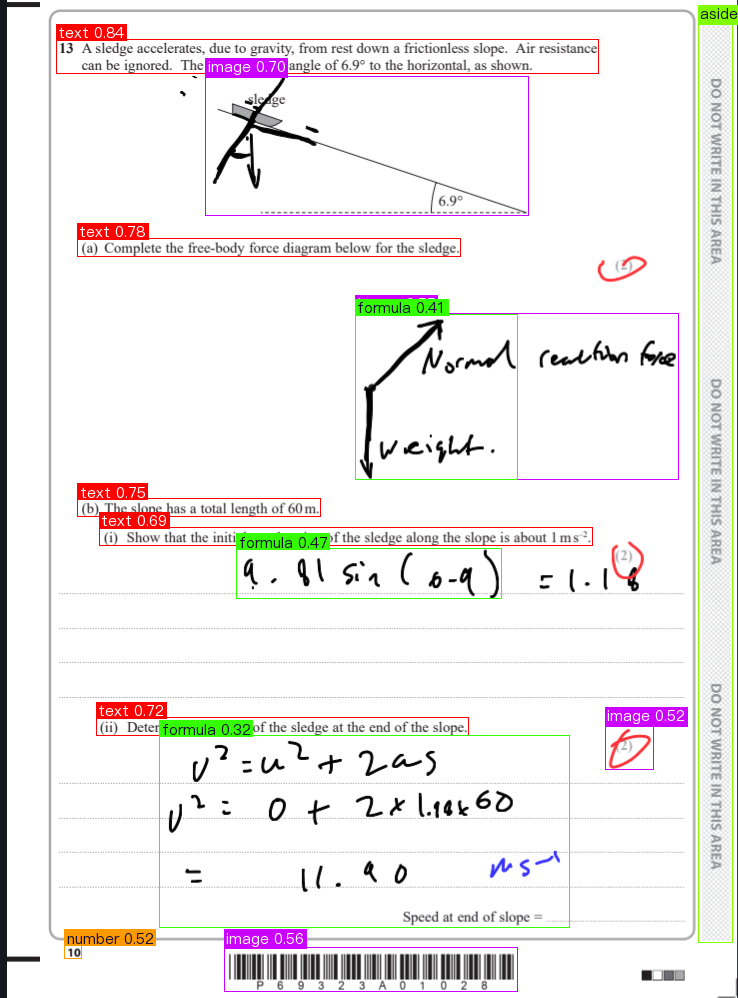 text 0.84
13 A sledge accelerates, due to gravity, from rest down a frictionless slope. Air resistance
can be ignored. The image 0.70 angle of 6.9° to the horizontal, as shown.
sledge
6.9°
text 0.78
(a) Complete the free-body force diagram below for the sledge.
(2)
formula 0.41
Normal reaction force
Weight.
text 0.75
(b) The slope has a total length of 60 m.
text 0.69
(i) Show that the of the sledge along the slope is about 1 m s⁻².
formula 0.47
(2)
9.81 sin (6.9) = 1.18
text 0.72
(ii) formula 0.32 of the sledge at the end of the slope.
image 0.52
(2)
v² = u² + 2as
v² = 0 + 2 × 1.18 × 60
= 11.90 ms⁻¹
Speed at end of slope =
number 0.52
10
image 0.56
P69323A01028
aside
DO NOT WRITE IN THIS AREA
DO NOT WRITE IN THIS AREA
DO NOT WRITE IN THIS AREA